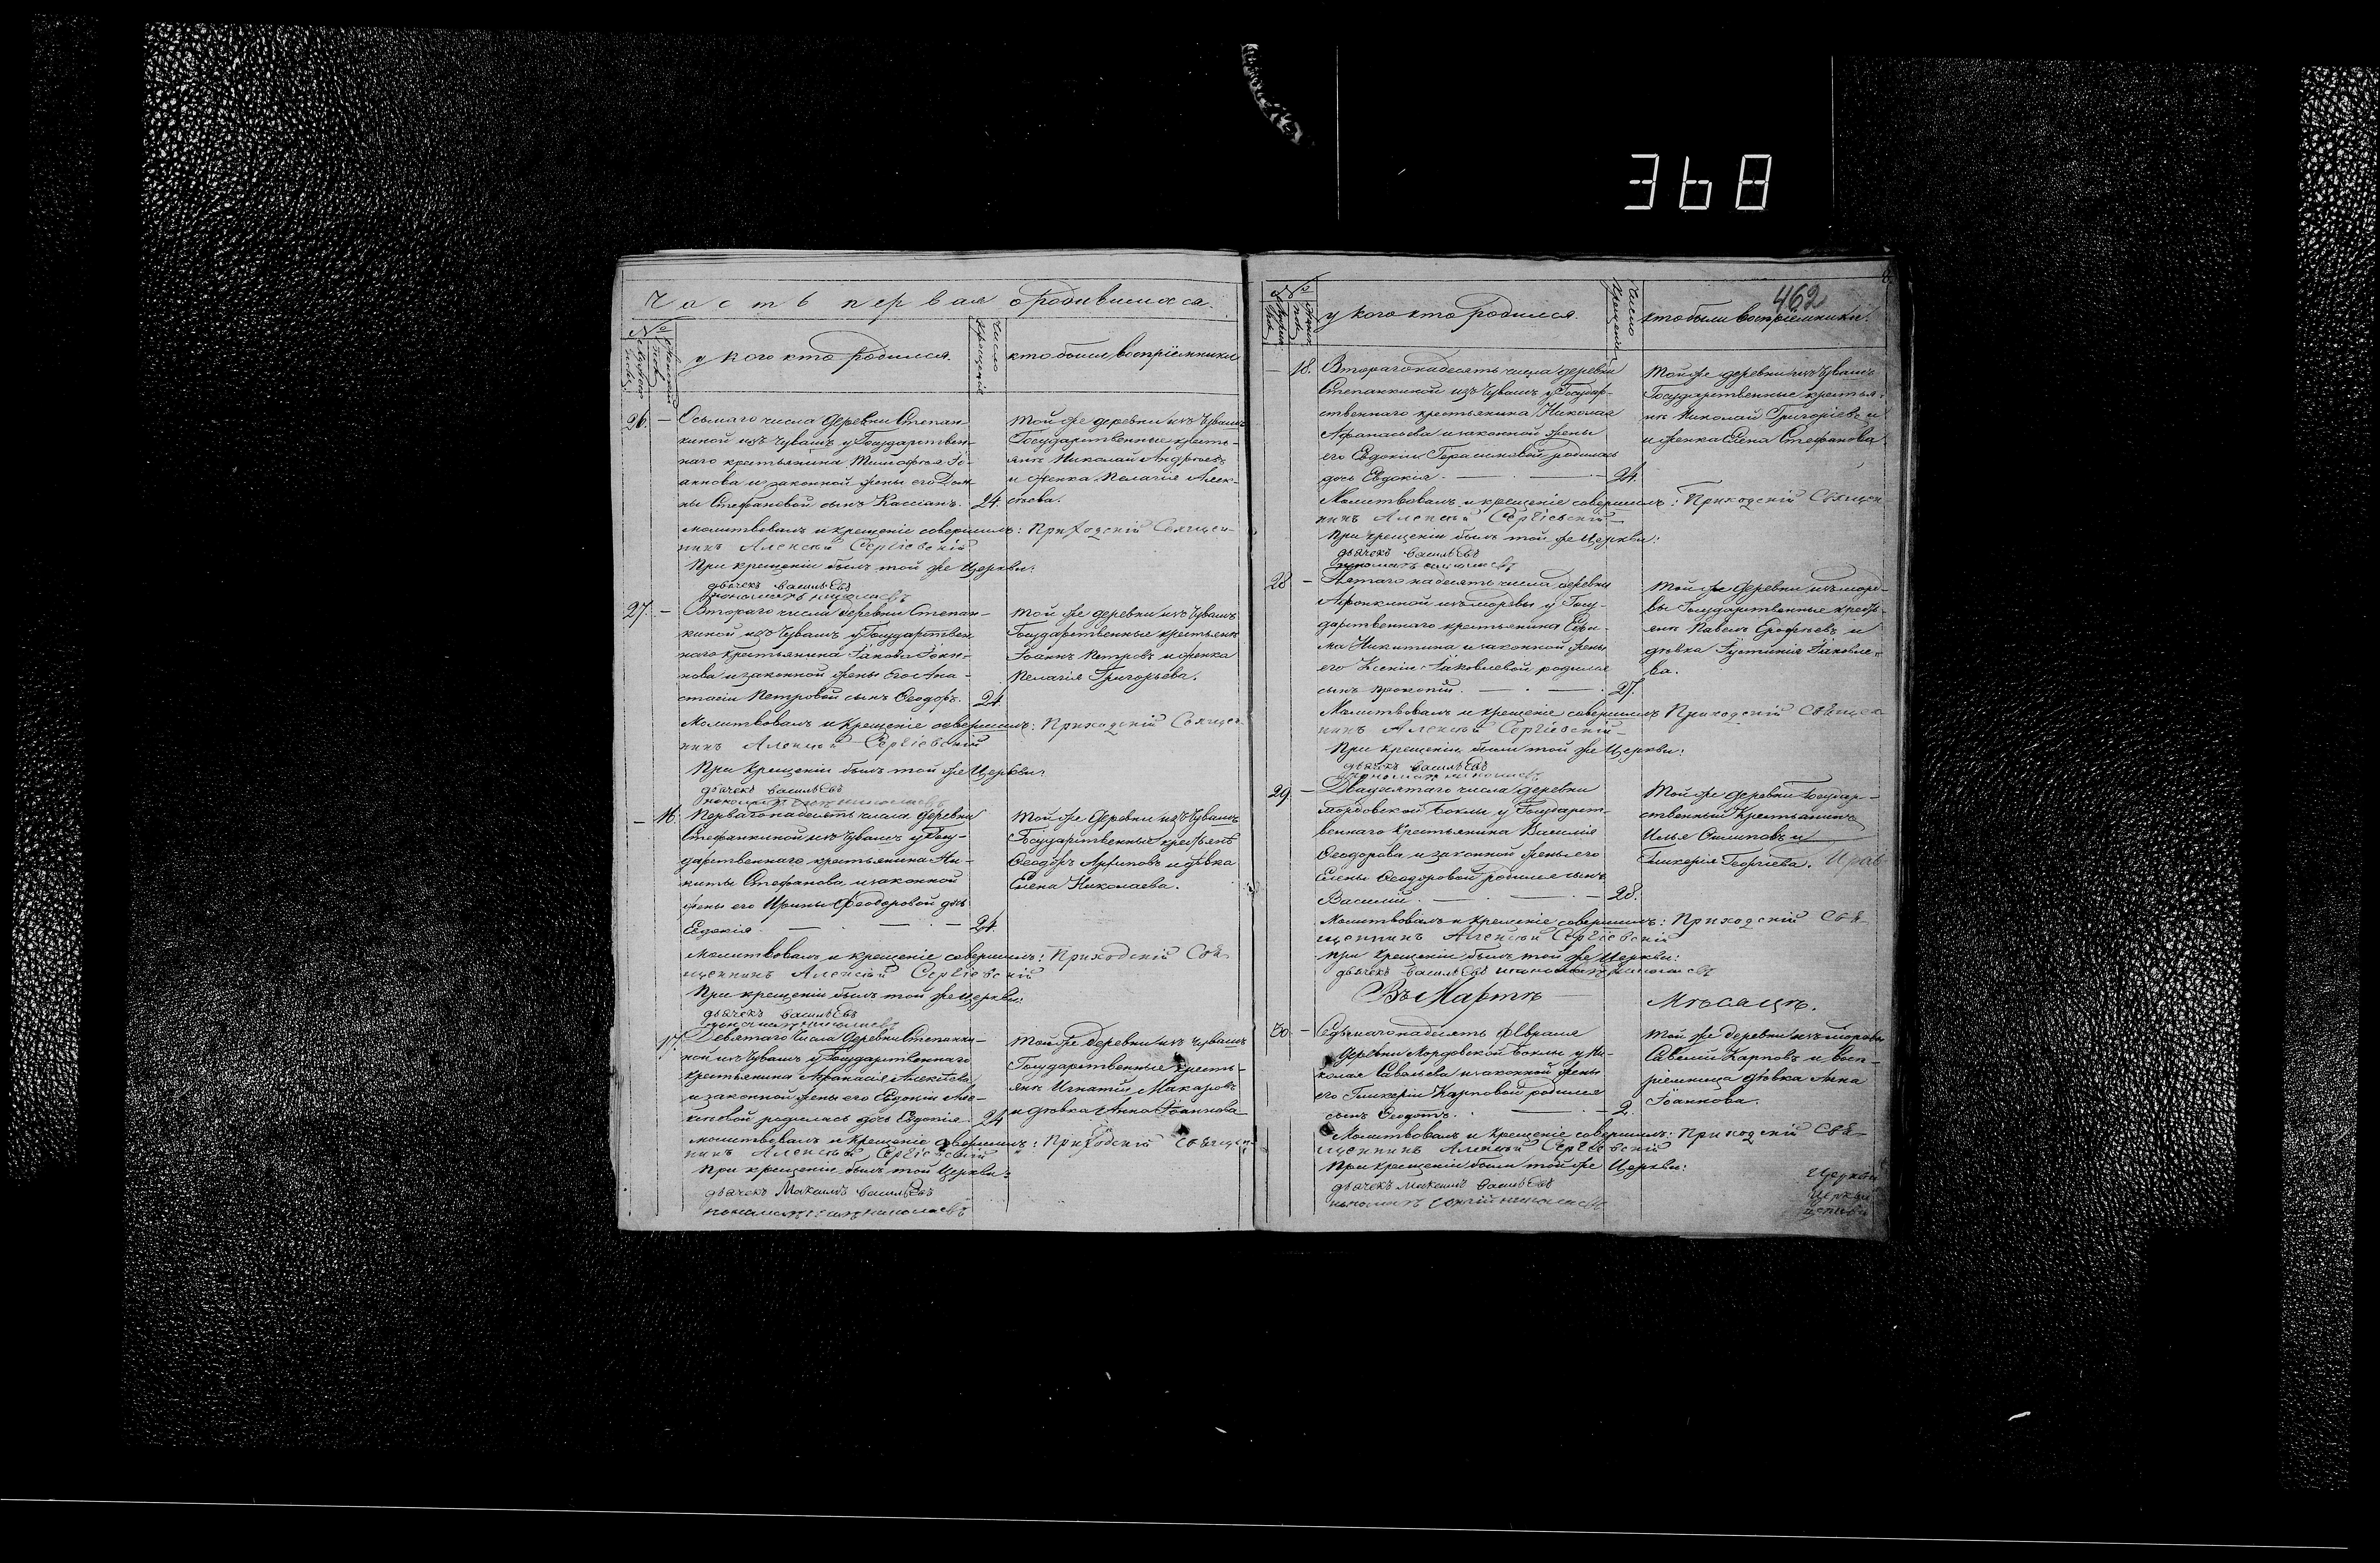 368
Часть первая о родившихся.
№
у кого кто родился.
Число крещенія
кто были воспріемники
26. — Осьмаго числа деревни Степан-
киной изъ Чувашъ у Государствен-
наго крестьянина Тимофея Іо-
аннова и законной жены его Дом-
ны Стефановой сынъ Кассіанъ. 24.
Той же деревни изъ Чувашъ
Государственные кресть-
яне Николай Андреевъ
и женка Пелагія Алек-
сѣева.
молитвовалъ и крещеніе совершилъ: Приходскій Священ-
никъ Алексѣй Сергіевскій
При крещеніи былъ той же Церкви:
дьячекъ Васильевъ
пономарь Николаевъ
27. — Втораго числа деревни Степан-
киной изъ Чувашъ у Государствен
наго крестьянина Іакова
нова и законной жены его Ана-
стасіи Петровой сынъ Ѳеодоръ. 24.
Той же деревни изъ Чувашъ
Государственные крестьяне
Іоаннъ Петровъ и женка
Пелагія Григорьева.
Молитвовалъ и крещеніе совершилъ: Приходскій Священ-
никъ Алексѣй Сергіевскій
При крещеніи былъ той же Церкви:
дьячекъ Васильевъ
пономарь Николаевъ
— 16. Перваго надесять числа деревни
Стефанкиной изъ Чувашъ у Госу-
дарственнаго крестьянина Ни-
киты Стефанова и законной
жены его Ирины Ѳеодоровой дочь
Евдокія. — — 24.
Той же деревни изъ Чувашъ
Государственные крестьяне
Ѳеодоръ Архиповъ и дѣвка
Елена Николаева.
Молитвовалъ и крещеніе совершилъ: Приходскій Свя-
щенникъ Алексѣй Сергіевскій
При крещеніи былъ той же церкви:
дьячекъ Васильевъ
пономарь Николаевъ
17. Девятаго числа деревни Степанки-
ной изъ Чувашъ у Государственнаго
крестьянина Афанасія Алексѣева
и законной жены его Евдокіи Але-
ксѣевой родилась дочь Евдокія. 24
Той же деревни изъ Чувашъ
Государственные кресть-
яне Игнатій Макаровъ
и дѣвка Анна Іоаннова
молитвовалъ и крещеніе совершилъ: Приходскій Священ-
никъ Алексѣй Сергіевскій
При крещеніи былъ той Церкви:
дьячекъ Максимъ Васильевъ
пономарь Николаевъ
462
№
у кого кто родился
Число крещенія
кто были воспріемники.
— 18. Втораго надесять числа деревни
Степанкиной изъ Чувашъ у Государ-
ственнаго крестьянина Николая
Афанасьева и законной жены
его Евдокіи Герасимовой родилась
дочь Евдокія. — — 24.
Той же деревни изъ Чувашъ
Государственные крестья-
не Николай Григоріевъ и
и женка Елена Стефанова
Молитвовалъ и крещеніе совершилъ: Приходскій Священ-
никъ Алексѣй Сергіевскій
При крещеніи былъ той же Церкви:
дьячекъ Васильевъ
пономарь Николаевъ
28 — Пятаго надесять числа деревни
Афонкиной изъ мордвы у Госу-
дарственнаго крестьянина Ефи-
ма Никитина и законной жены
его Ксеніи Іаковлевой родился
сынъ Прокопій. — — 27.
Той же деревни изъ морд-
вы Государственные кресть-
яне Павелъ Ерофѣевъ и
дѣвка Іустинія Іаковле-
ва.
Молитвовалъ и крещеніе совершилъ Приходскій Священ-
никъ Алексѣй Сергіевскій
При крещеніи были той же Церкви:
дьячекъ Васильевъ
пономарь Николаевъ
29. — Двадесятаго числа деревни
Мордовской Боклы у Государст-
веннаго крестьянина Василія
Ѳеодорова и законной жены его
Елены Ѳеодоровой родился сынъ
Василій. — — 28.
Той же деревни Государ-
ственный Крестьянинъ
Илья Филиповъ и
Гликерія Георгіева.
Молитвовалъ и крещеніе совершилъ: Приходскій Свя-
щенникъ Алексѣй Сергіевскій
При крещеніи былъ той же Церкви:
дьячекъ Васильевъ пономарь Николаевъ
Въ Мартѣ Мѣсяцѣ.
30. — Седьмаго надесять Февраля
деревни Мордовской Боклы у Ни-
колая Савельева и законной жены
его Гликеріи Карповой родился
сынъ Ѳеодотъ. — — 2.
Той же деревни изъ мордвы
Савелій Карповъ и восп-
ріемница дѣвка Анна
Іоаннова.
Молитвовалъ и крещеніе совершилъ: Приходскій Свя-
щенникъ Алексѣй Сергіевскій
При крещеніи были той же Церкви:
дьячекъ Максимъ Васильевъ
пономарь Сергій Николаевъ
Церкви
Церкви
Церкви